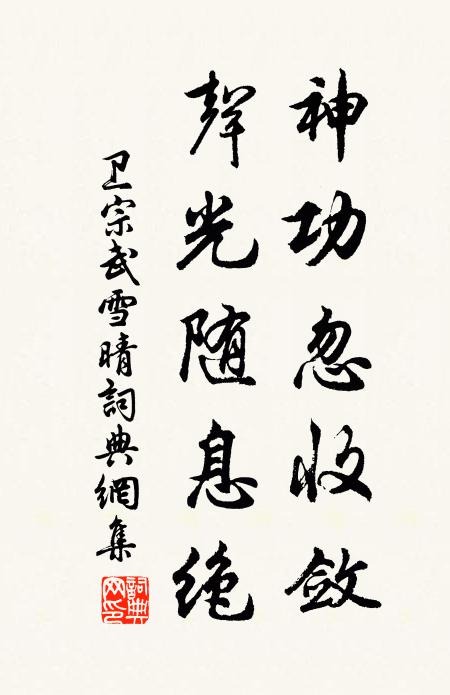 神功忽收斂
聲光随息绝
卫宗武雪晴詞典網集
詞典網印